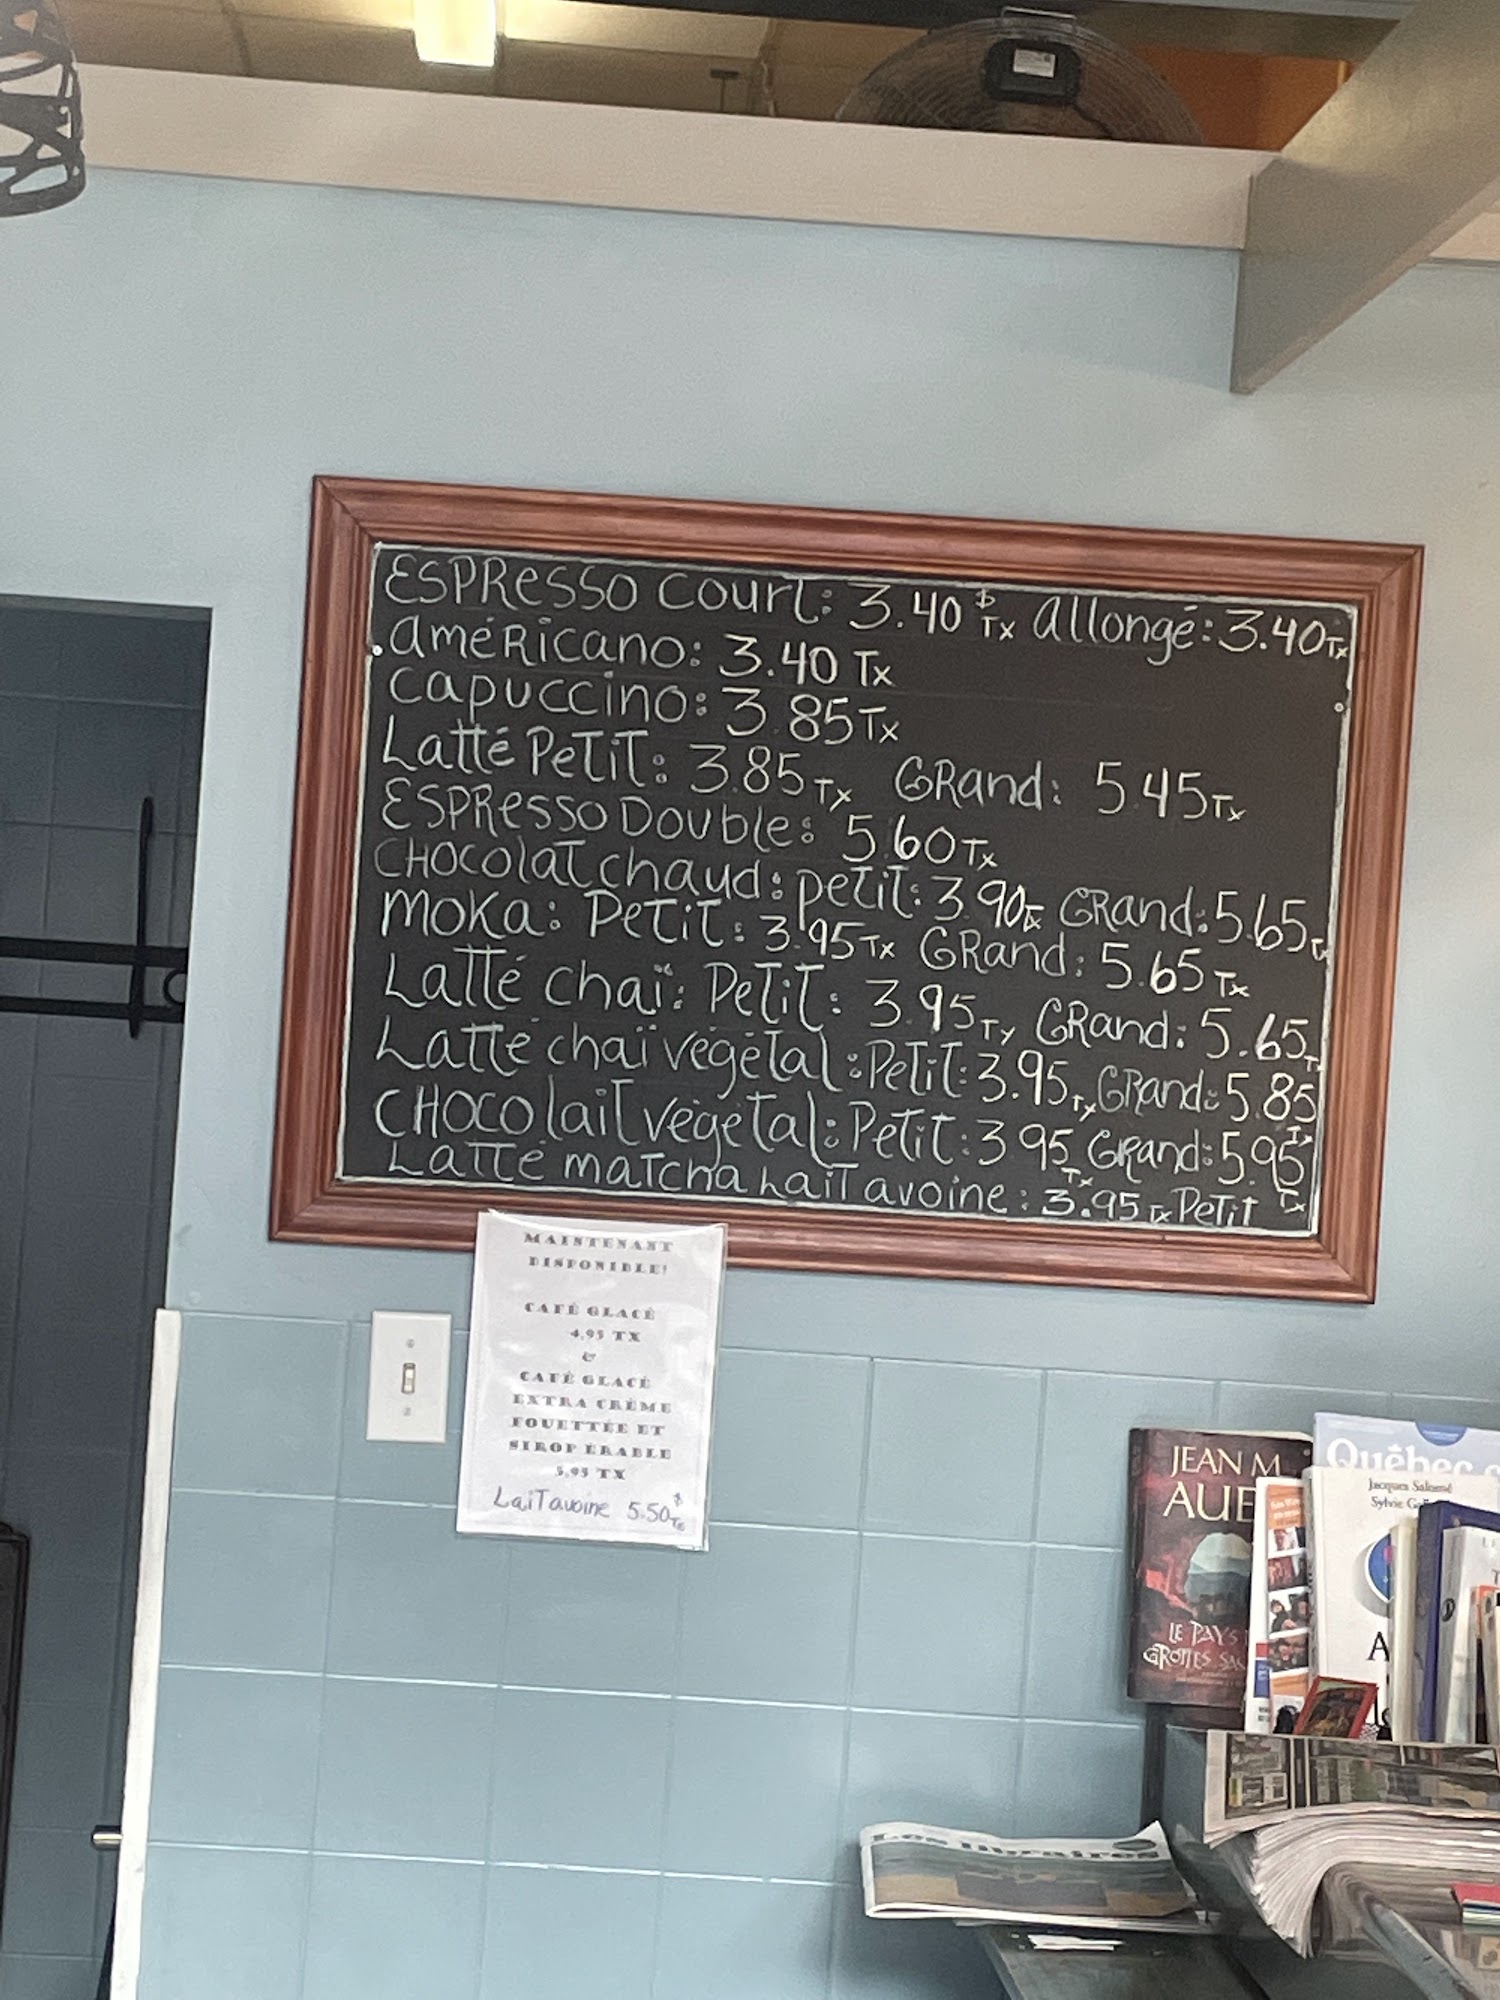 ESPRESSO COURT: 3.40 $ Tx allongé: 3.40 Tx
américano: 3.40 Tx
capuccino: 3.85 Tx
Latté Petit: 3.85 Tx Grand: 5.45 Tx
ESPRESSO Double: 5.60 Tx
CHOCOlat chaud: petit: 3.90 Tx Grand: 5.65 Tx
Moka: Petit: 3.95 Tx Grand: 5.65 Tx
Latté chaï: Petit: 3.95 Tx Grand: 5.65 Tx
Latté chaï végétal: Petit: 3.95 Tx Grand: 5.85 Tx
CHOCO lait végétal: Petit: 3.95 Tx Grand: 5.95 Tx
Latté matcha Lait avoine: 3.95 Tx Petit
MAINTENANT
DISPONIBLE!
CAFÉ GLACÉ
4.95 TX
&
CAFÉ GLACÉ
EXTRA CRÈME
FOUETTÉE ET
SIROP ÉRABLE
5.95 TX
Lait avoine 5.50 $ Tx
JEAN M.
AUE
LE PAYS
GROTTES SA
Québec
Jacques Salomé
Sylvie
A
Les libraires